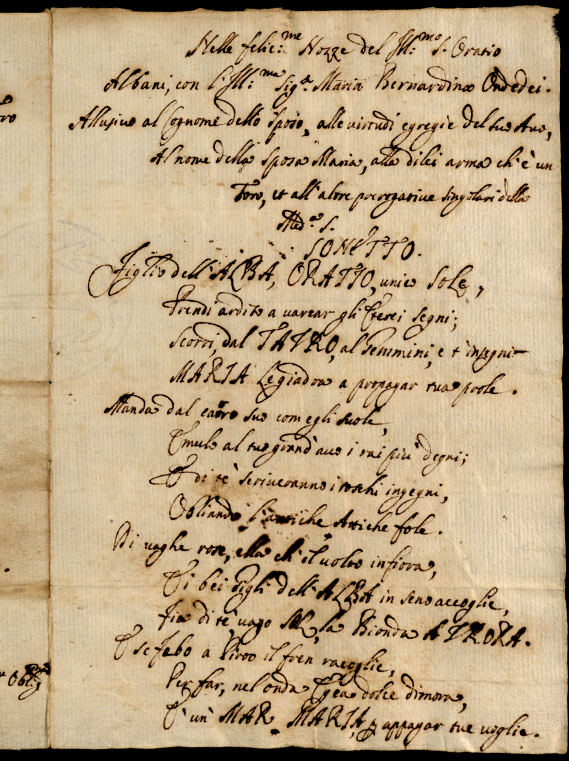 Nelle felic:me Nozze del Ill:mo S. Oratio
Albani, con l'Ill:ma Sig.a Maria Bernardina Ondedei.
Allusivo al Cognome dello Sposo, alle virtudi egregie del suo Avo,
Al nome della Sposa Maria, alla di lei arma ch'è un
Toro, et all'altre prerogative singolari della
Med.a S.
SONETTO.
Figlio dell'ALBA, ORATIO, unico SOLE,
Prendi ardito a varcar gli Eterei segni;
Scorri, dal TAURO, al Gemmini, e t'insegni
MARIA Legiadra a propagar tua prole.
Manda dal carro suo com egli suole,
Emulo al tuo grand'avo i rai più degni;
E di te scriveranno i toschi ingegni,
Obliando l'antiche Attiche fole.
Di vaghe rose, ella ch'il volto infiora,
E i bei Gigli dell'ALBA in seno accoglie,
Fia di te, vago SOL, la Bionda AURORA.
E se Febo a Piroo il fren raccoglie,
Per far, nel onda Egea dolce dimora,
E' un' MAR MARIA, p appagar tue voglie.
ro
Obl: